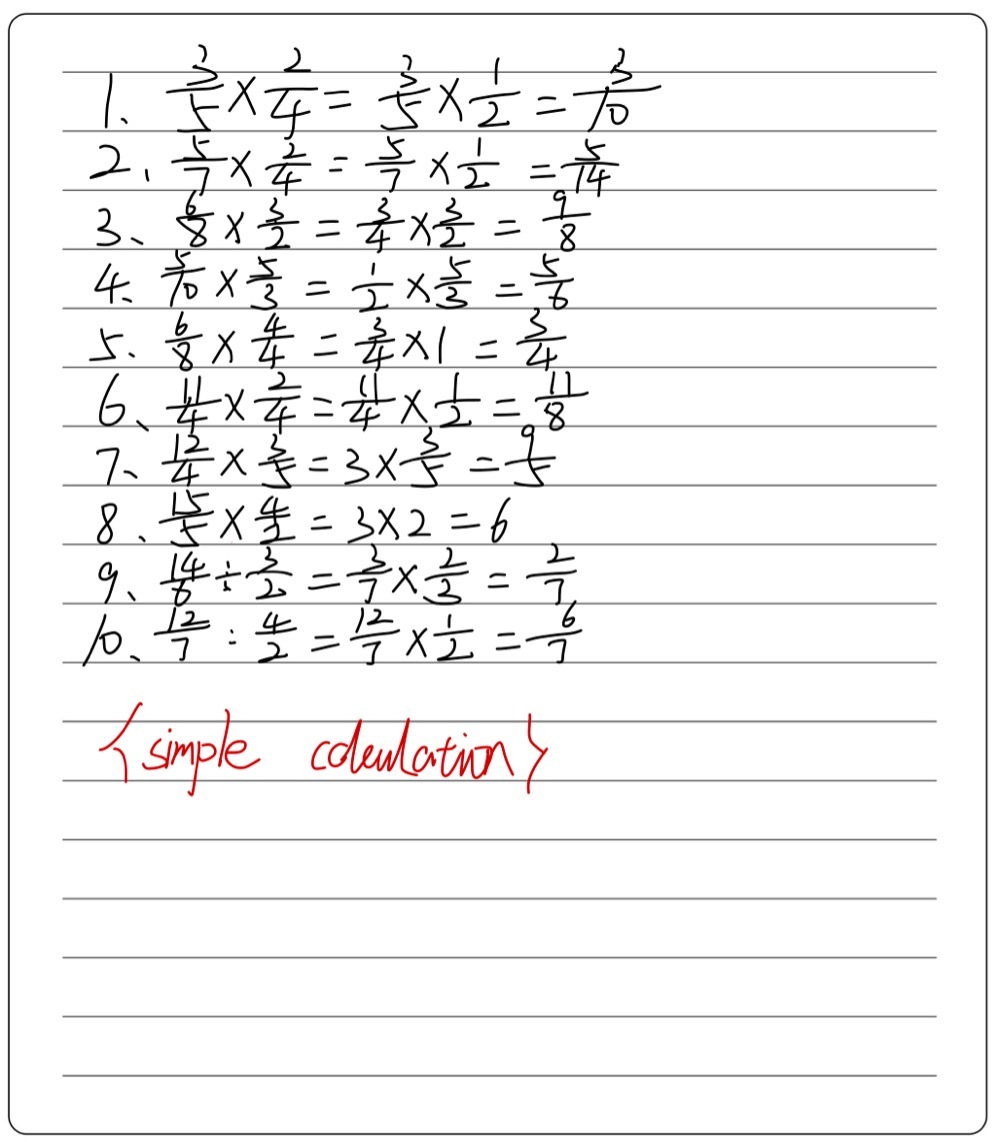 1、 3/5 × 2/4 = 3/5 × 1/2 = 3/10
2、 5/7 × 2/4 = 5/7 × 1/2 = 5/14
3、 6/8 × 3/2 = 3/4 × 3/2 = 9/8
4、 5/10 × 5/3 = 1/2 × 5/3 = 5/6
5、 6/8 × 4/4 = 3/4 × 1 = 3/4
6、 11/4 × 2/4 = 11/4 × 1/2 = 11/8
7、 12/4 × 3/5 = 3 × 3/5 = 9/5
8、 15/5 × 4/2 = 3 × 2 = 6
9、 14/6 ÷ 3/2 = 3/7 × 2/3 = 2/7
10、 12/7 ÷ 4/2 = 12/7 × 1/2 = 6/7
{simple calculation}